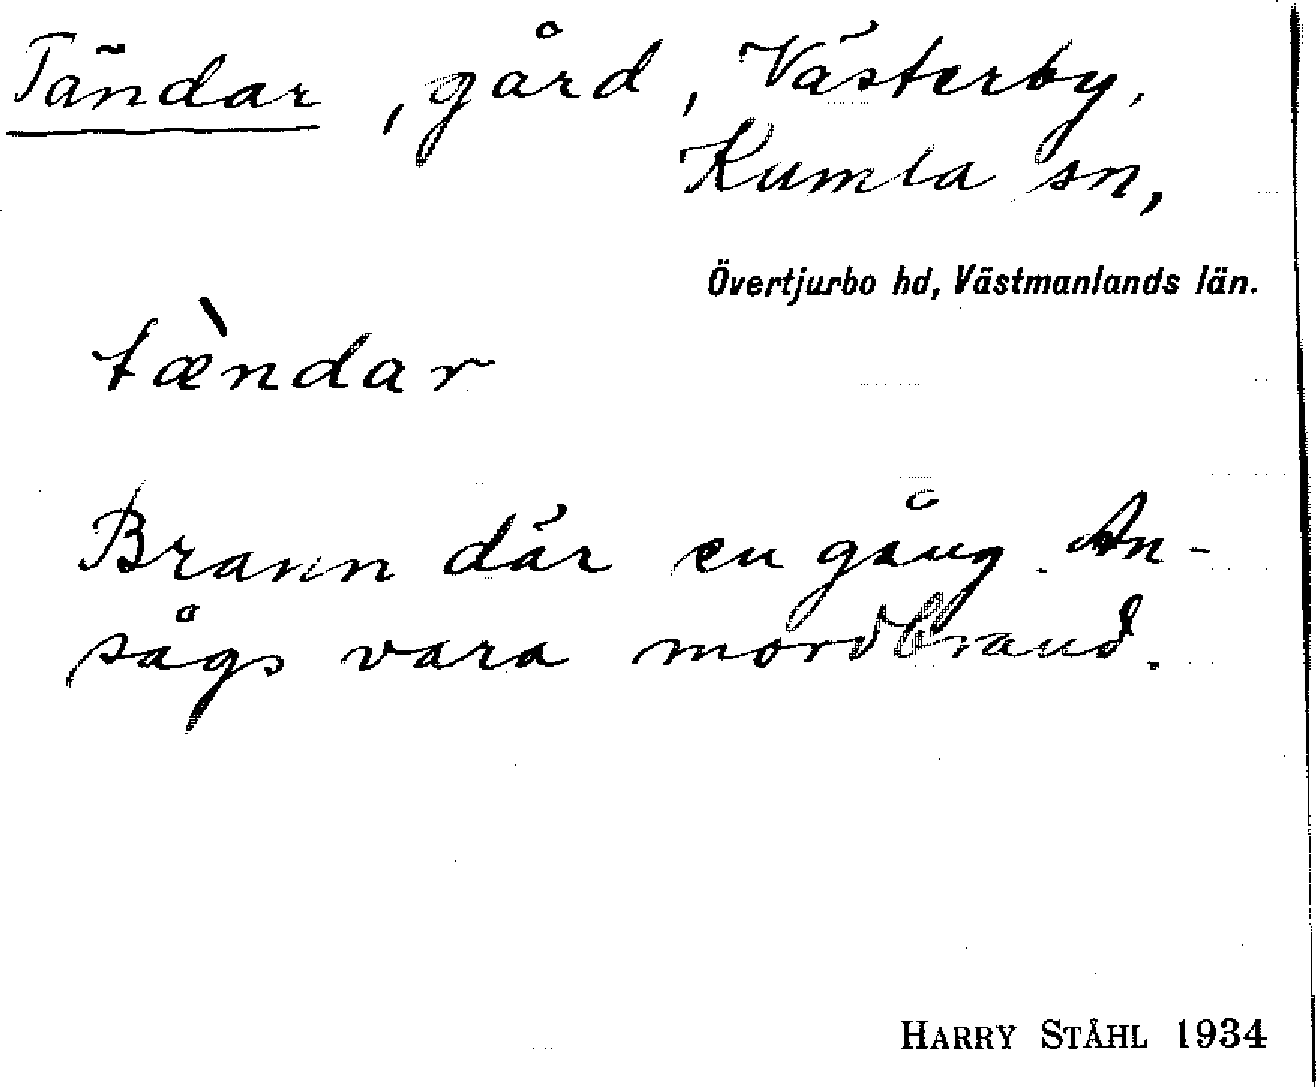 Tändar, gård, Västerby,
Kumla sn,
Övertjurbo hd, Västmanlands län.
tæ̀ndar
Brann där en gång. An-
sågs vara mordbrand.
HARRY STÅHL 1934